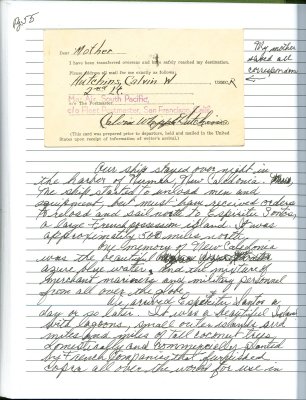 Pg 55
My mother
saved all
Dear Mother
I have been transferred overseas and have safely reached my destination.
Please address all mail for me exactly as follows:
Hutchins, Calvin W
2nd Lt.
South Pacific,
c/o Fleet Postmaster, San Francisco, Calif.
Calvin Hutchins
(This card was prepared prior to departure, held and mailed in the United
States upon receipt of information of writer's arrival)
Our ship stayed over night in
the harbor of New Caledonia
The ship started to unload men and
equipment, but must have received orders
to reload and sail north to Espiritu
a large French possession island. It was
approximately 500 miles north.
One memory of New Caledonia
was the beautiful
azure blue water, and the mixture of
merchant mariners and military personnel
from all over the globe.
We arrived Santos a
day or so later. It was a beautiful Island
with lagoons, small outer islands and
miles and miles of tall coconut trees,
domestically and commercially planted
by French Companies that furnished
Copra all over the world for use in